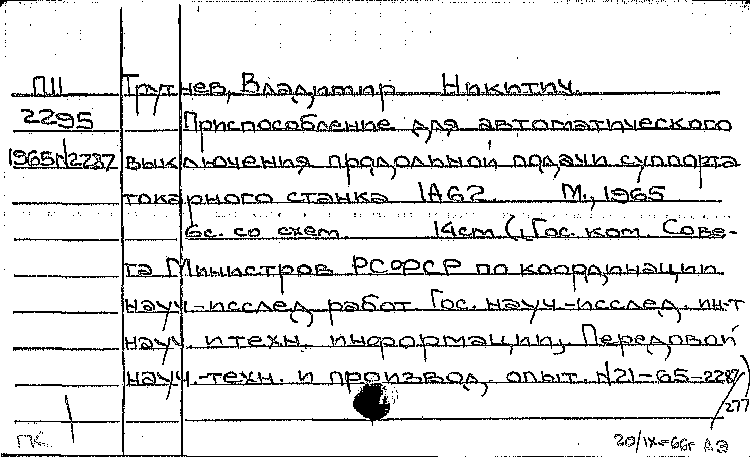 ПII Трутнев, Владимир Никитич.
2295 Приспособление для автоматического
1965г/2287 выключения продольной подачи суппорта
токарного станка 1А62 М., 1965
6с. со схем. 14см (Гос. ком. Сове-
та Министров РСФСР по координации
науч.-исслед. работ. Гос. науч.-исслед. ин-т
науч. и техн. информации, Передовой
науч.-техн. и производ. опыт. №21-65-2287/
277)
ПК 20/IX-66г АЭ